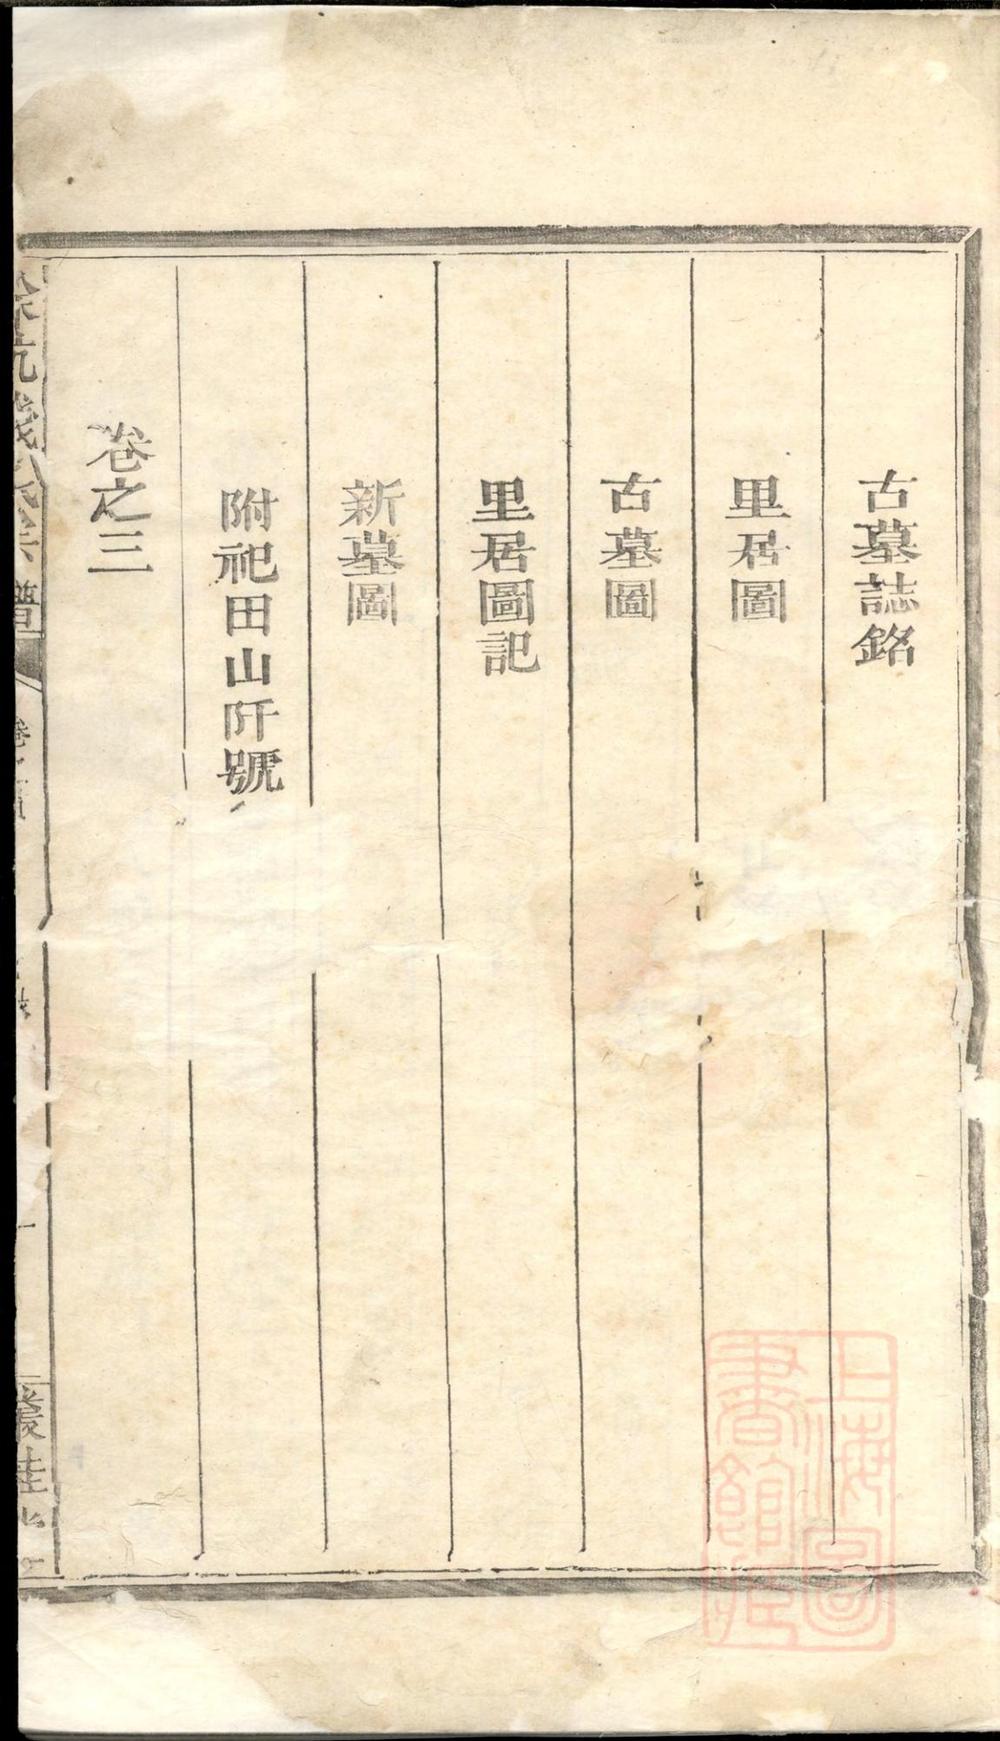 古墓誌銘
里居圖
古墓圖
里居圖記
新墓圖
附祀田山阡號
卷之三
譜
上海圖書館藏